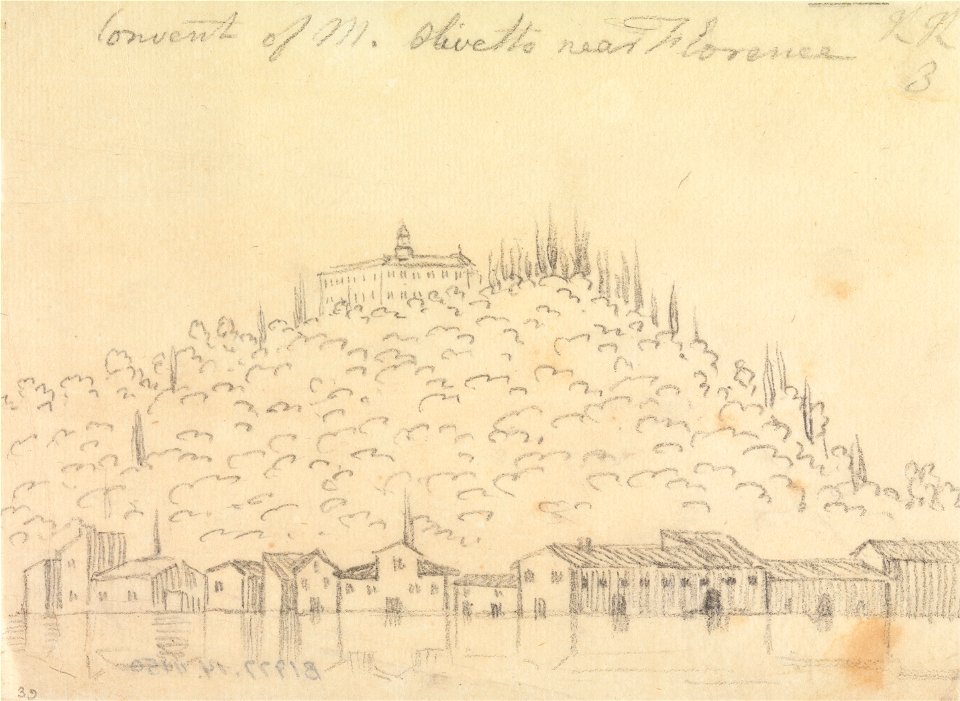 Convent of M. Olivetto near Florence
K K
3
B1977.14.4450
39